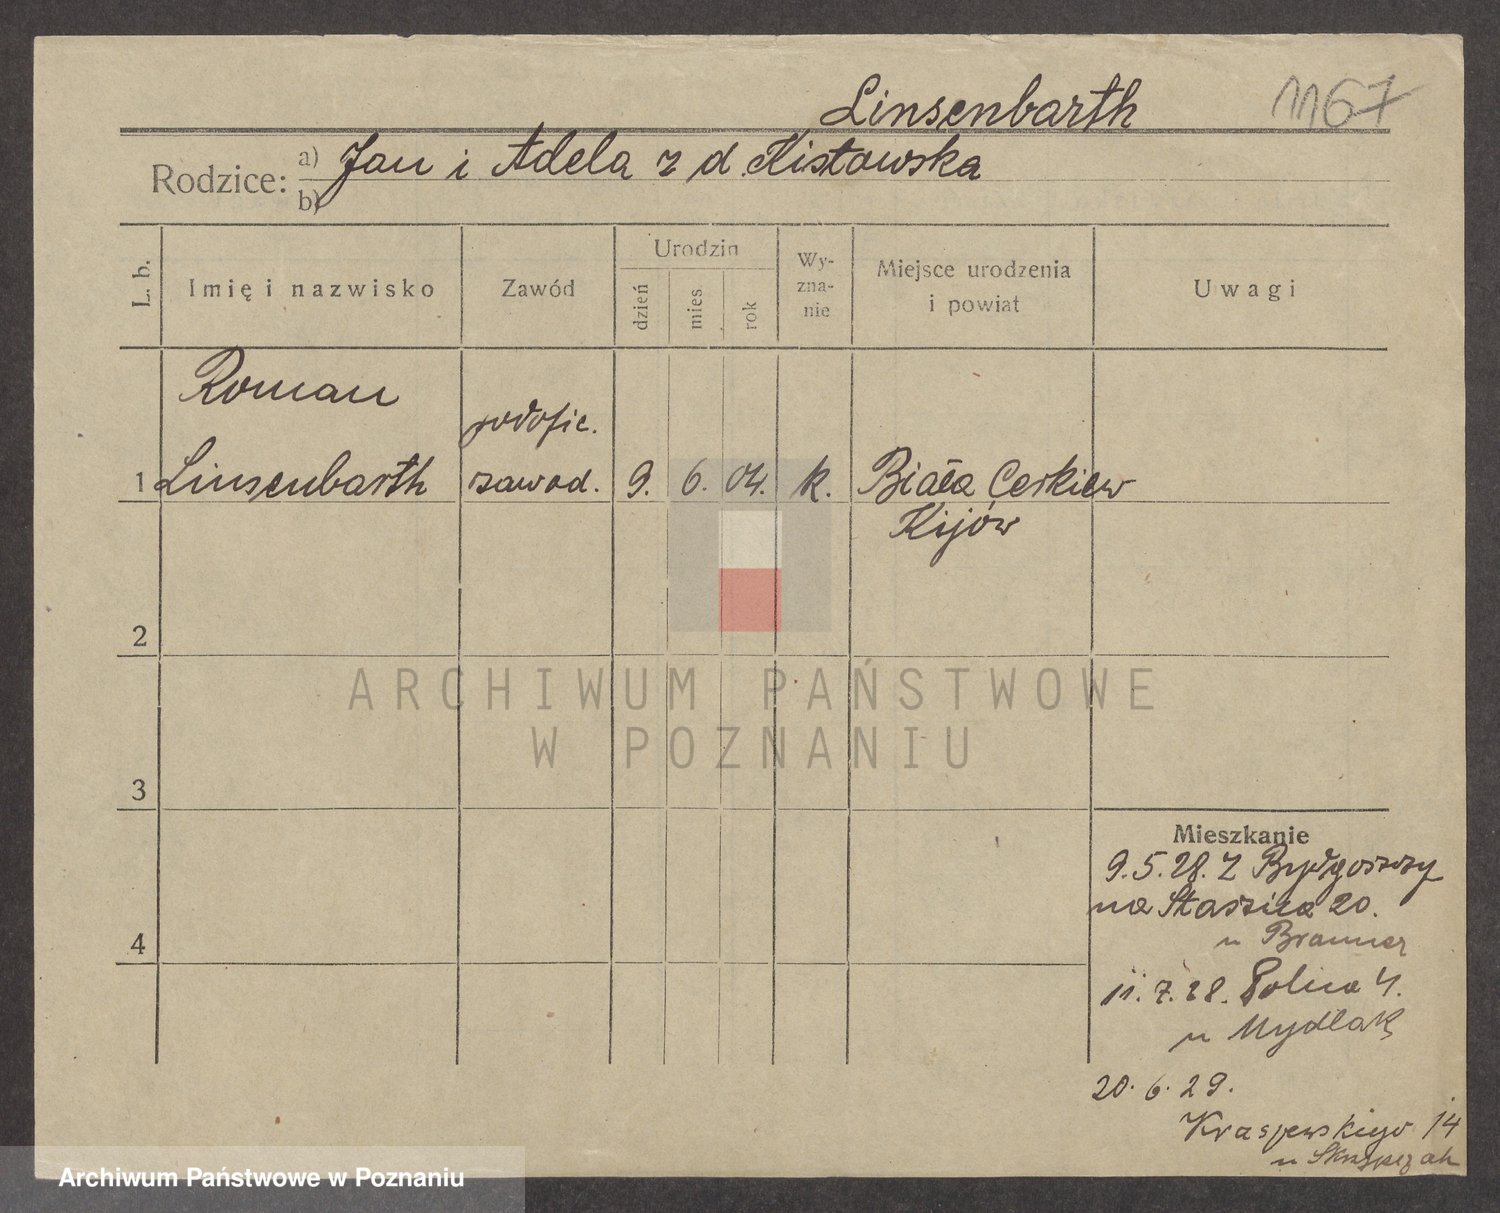 Linsenbarth
1167
Rodzice: a) Jan i Adela z d. Kistowska
b)
L. b.
Imię i nazwisko
Zawód
Urodzin
dzień
mies.
rok
Wy-
zna-
nie
Miejsce urodzenia
i powiat
Uwagi
Roman
podofic.
1 Linsenbarth zawod. 9. 6. 04. k. Biała Cerkiew
Kijów
2
3
4
Mieszkanie
9.5.28. Z Bydgoszczy
na Staszica 20.
u Brauner
11.7.28. Polna 4.
u Mydlak
20.6.29.
Kraszewskiego 14
u
ARCHIWUM PAŃSTWOWE
W POZNANIU
Archiwum Państwowe w Poznaniu